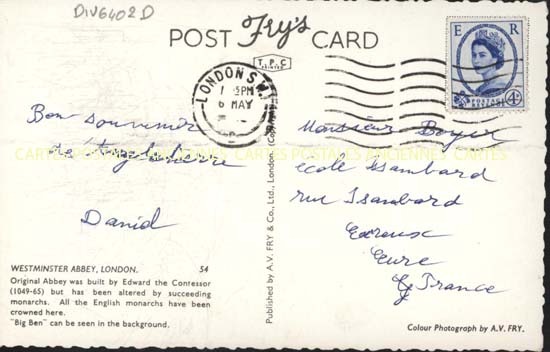 DIV6402D
POST Fry's CARD
T.P.C
E R
POSTAGE
4D
LONDON S.W.1
1 - PM
6 MAY
Bon souvenir
d'Angleterre
Daniel
Monsieur Boyer
école Isambard
rue Isambard
Evreux
Eure
France
CARTES POSTALES ANCIENNES CARTES
Published by A.V. FRY & Co., Ltd., London. (Copyright)
WESTMINSTER ABBEY, LONDON. 54
Original Abbey was built by Edward the Contessor
(1049-65) but has been altered by succeeding
monarchs. All the English monarchs have been
crowned here.
"Big Ben" can be seen in the background.
Colour Photograph by A.V. FRY.